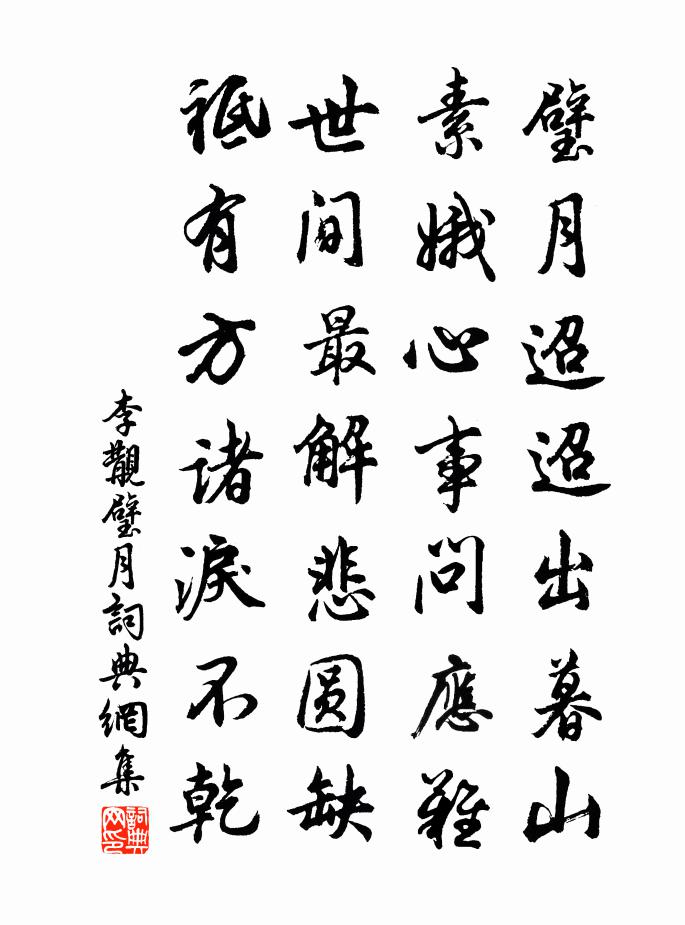 璧月迢迢出暮山
素娥心事问應難
世间最解悲圆缺
祗有方诸淚不乾
李觀璧月詞典網集
詞典网印